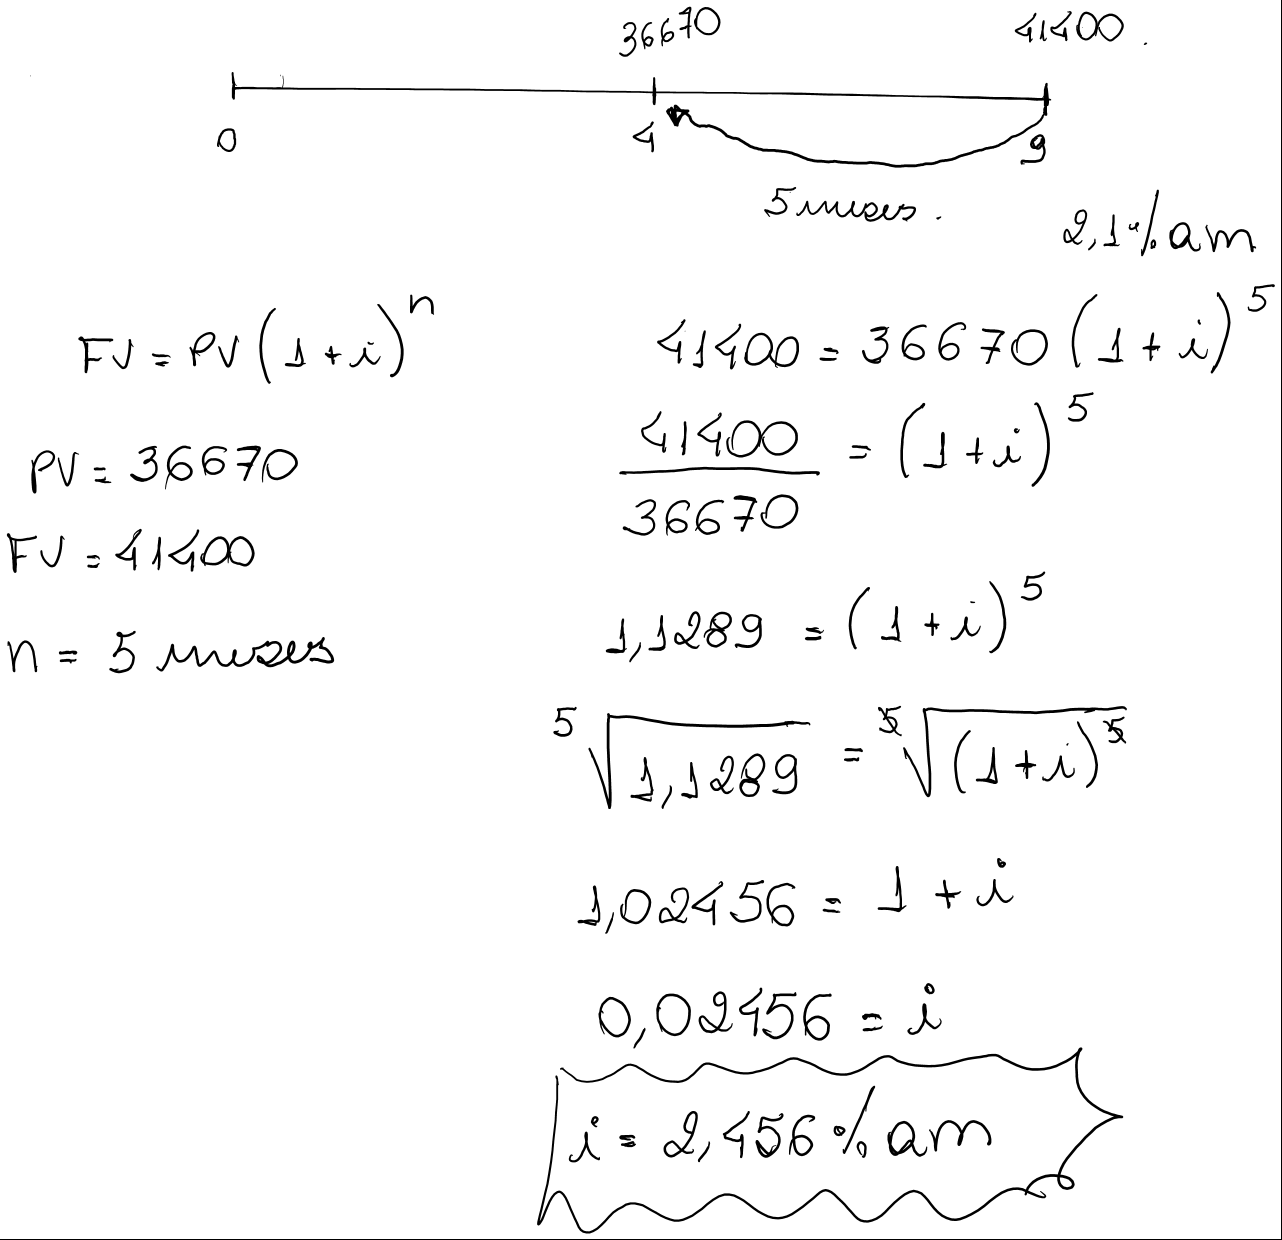 36670 41400
0 4 9
5 meses.
2,1% am
FV = PV (1 + i)^n
PV = 36670
FV = 41400
n = 5 meses
41400 = 36670 (1 + i)^5
41400 / 36670 = (1 + i)^5
1,1289 = (1 + i)^5
5√1,1289 = 5√(1 + i)^5
1,02456 = 1 + i
0,02456 = i
i = 2,456 % am